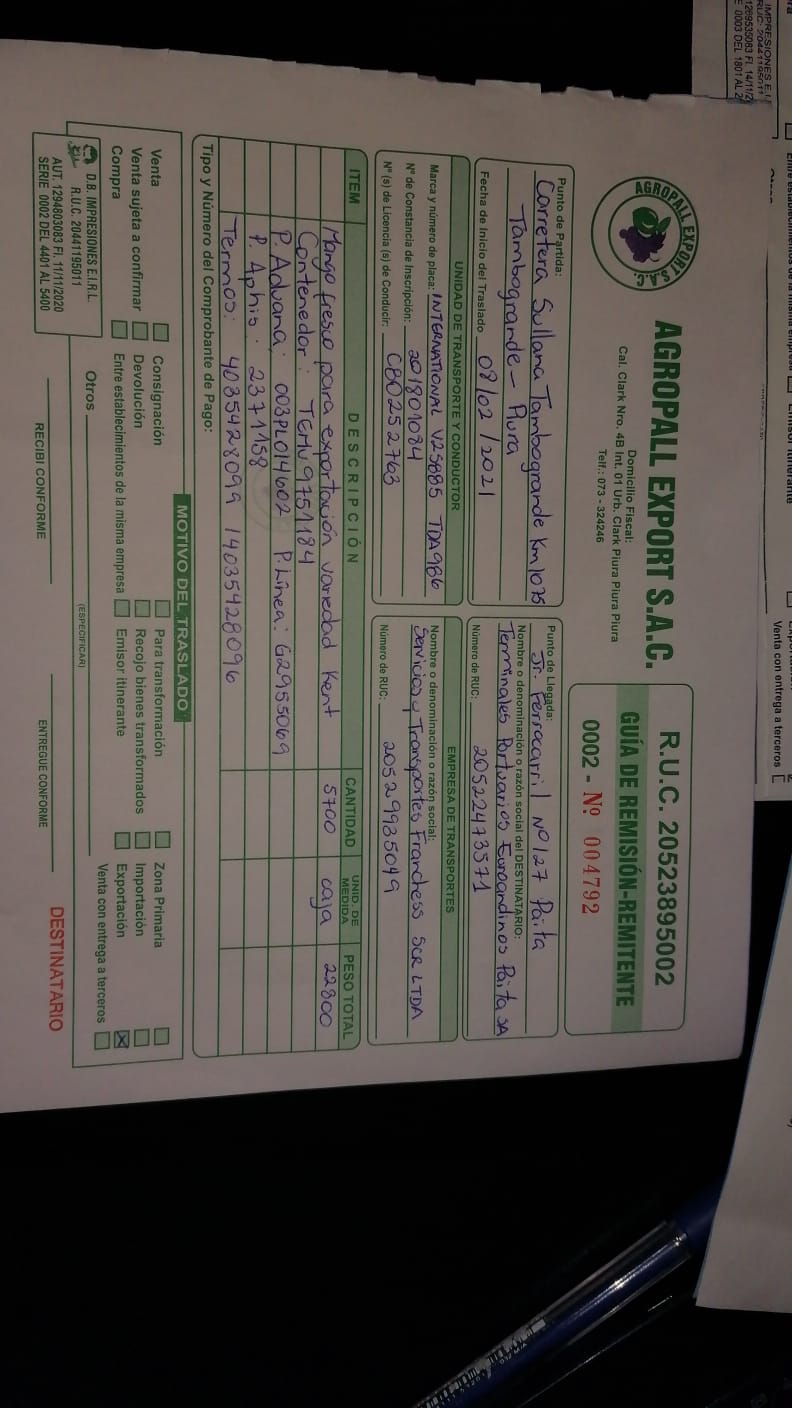 AGROPALL EXPORT S.A.C.
AGROPALL EXPORT S.A.C.
Domicilio Fiscal:
Cal. Clark Nro. 4B Int. 01 Urb. Clark Piura Piura Piura
Telf.: 073 - 324246
R.U.C. 20523895002
GUÍA DE REMISIÓN-REMITENTE
0002 - Nº 004792
Punto de Partida:
Carretera Sullana Tambogrande Km 1075
Tambogrande - Piura
Fecha de Inicio del Traslado 08/02/2021
Punto de Llegada:
Jr. Ferrocarril Nº 127 Paita
Nombre o denominación o razón social del DESTINATARIO:
Terminales Portuarios Euroandinos Paita SA
Número de RUC: 20522473571
UNIDAD DE TRANSPORTE Y CONDUCTOR
Marca y número de placa: INTERNATIONAL V2S885 TDA986
Nº de Constancia de Inscripción: 201801084
Nº (s) de Licencia (s) de Conducir: C80252763
EMPRESA DE TRANSPORTES
Nombre o denominación o razón social:
Servicios y Transportes Franchess SCR LTDA
Número de RUC: 20529935049
ITEM DESCRIPCIÓN CANTIDAD UNID. DE MEDIDA PESO TOTAL
Mango fresco para exportación variedad Kent 5700 caja 22800
Contenedor: TEMU9751184
P. Aduana: 003PL014602 P. Línea: G2955069
P. Aphis: 2371158
Termos: 4035428099 14035428096
Tipo y Número del Comprobante de Pago:
MOTIVO DEL TRASLADO
Venta Consignación Para transformación Zona Primaria
Venta sujeta a confirmar Devolución Recojo bienes transformados Importación
Compra Entre establecimientos de la misma empresa Emisor itinerante Exportación
Otros Venta con entrega a terceros
(ESPECIFICAR)
D.B. IMPRESIONES E.I.R.L.
R.U.C. 20441195011
AUT. 1294803083 FI. 11/11/2020
SERIE 0002 DEL 4401 AL 5400
RECIBI CONFORME
ENTREGUE CONFORME
DESTINATARIO
Venta con entrega a terceros